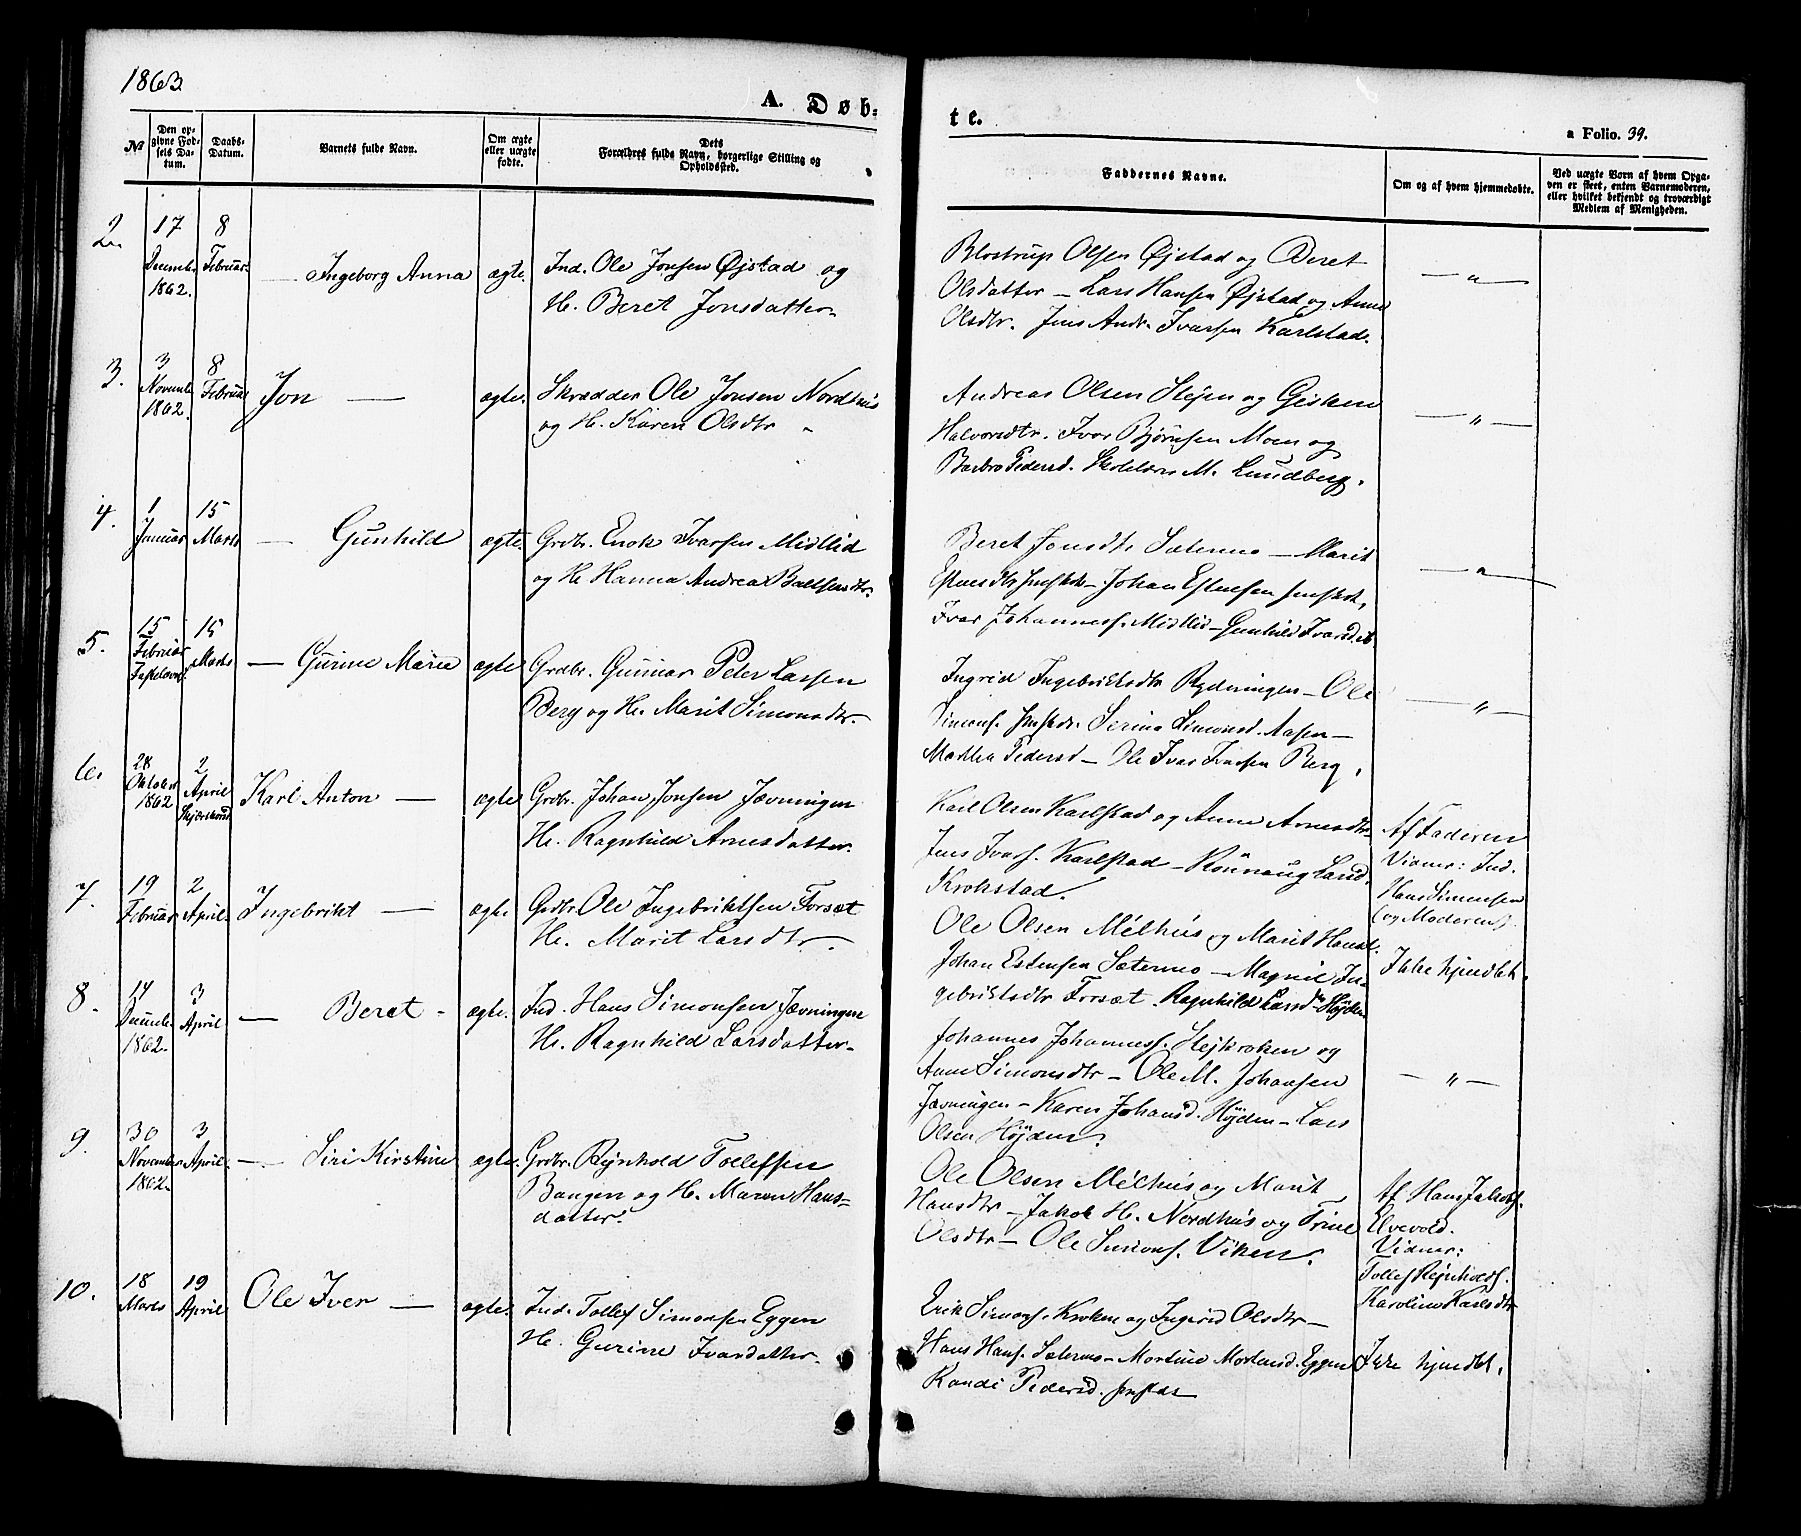 1863
A. Døb-
te.
a Folio. 39.
No
Den op-
givne Fød-
sels Da-
tum.
Daabs-
Datum.
Barnets fulde Navn.
Om ægte
eller uægte
fødte.
Dets
Forældres fulde Navn, borgerlige Stilling og
Opholdssted.
Faddernes Navne.
Om og af hvem hjemmedøbte.
Ved uægte Børn af hvem Opga-
ven er skeet, enten Barnemoderen,
eller hvilket bekjendt og troværdigt
Medlem af Menigheden.
2.
17
Decembr.
1862.
8
Februar.
— Ingeborg Anna
ægte.
Ind. Ole Jonsen Øjstad og
H. Beret Jonsdatter.
Olsen Øjstad og Beret
Olsdatter — Lars Hansen Øjstad og Anne
Olsdtr. Jens Andr. Ivarsen Karlstad.
— " —
3.
3
Novembr.
1862.
8
Februar
Jon —
ægte.
Skrædder Ole Jonsen Nordhus
og H. Karen Olsdtr
Andreas Olsen Hejen og Gisken
Halvorsdtr. Ivar Bjørnsen Moen og
Barbro Pedersd. M. Lundberg.
— " —
4.
1
Januar
15
Marts
— Gunhild
ægte.
Grdbr. Enok Ivarsen Midtlid
og H. Hanna Andrea Baltsersdtr.
Beret Jonsdtr Sætermo — Marit
Estensdtr — Johan Estensen
Ivar Johanness. Midtlid — Gunhild Ivarsdt.
— " —
5.
15
Februar
Fastelavn
15
Marts
— Gurine Marie
ægte
Grdbr. Gunnar Peter Larsen
Berg og H. Marit Simonsdtr.
Ingrid Ingebriktsdtr Ryderningen — Ole
Simons. Serina Simonsd. Aasen —
Martha Pedersd — Ole Ivar Ivarsen Berg.
— " —
6.
28
Oktober
1862
2
April
Skjærthorsd
Karl Anton —
ægte
Grdbr. Johan Jonsen Jævningen
H. Ragnhild Arnesdatter.
Karl Olsen Karlstad og Anne Arnesdtr
Jens Ivars. Karlstad — Rønnaug Larsd.
Krokstad.
Af Faderen
Vidner: Ind.
Hans Simensen
(og Moderen).
7.
19
Februar
2
April.
Ingebrikt —
ægte.
Grdbr. Ole Ingebriktsen Forsæt
H. Marit Larsdtr.
Ole Olsen Mélhus og Marit Hansd.
Johan Estensen Sætermo — Magnil In-
gebriktsdtr Forsæt. Ragnhild Larsdtr Højden
Ikke hjmdbt.
8.
14
Decembr.
1862.
3
April
— Beret —
ægte.
Ind. Hans Simonsen Jævningen
H. Ragnhild Larsdatter.
Johannes Johanness. Hejkroken og
Anne Simonsdtr — Ole M. Johansen
Jævningen — Karen Johansd. Højden — Lars
Olsen Højden.
— " —
9.
30
November
1862.
3
April.
— Siri Kirstine
ægte.
Grdbr. Rejnhold Tollefsen
Bangen og H. Maren Hans-
datter.
Ole Olsen Mélhus og Marit
Hansdtr — Jakob H. Nordhus og Trine
Olsdtr — Ole Simons. Viken.
Af Hans Jakobs.
Elvevold.
Vidner:
Tollef Rejnholds.
Karoline Karlsdtr
10.
18
Marts
19
April
Ole Iver —
ægte.
Ind. Tollef Simonsen Eggen
H. Gurine Ivarsdatter.
Erik Simons. Kroken og Ingrid Olsdtr —
Hans Hans. Sætermo — Martine Mortensd. Eggen
Randi Pedersd.
Ikke hjmdbt.